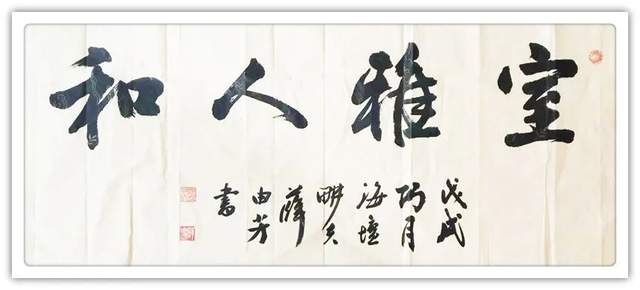 室雅人和
戊戌
巧月
海壇
畊夫
薛
由芳
書